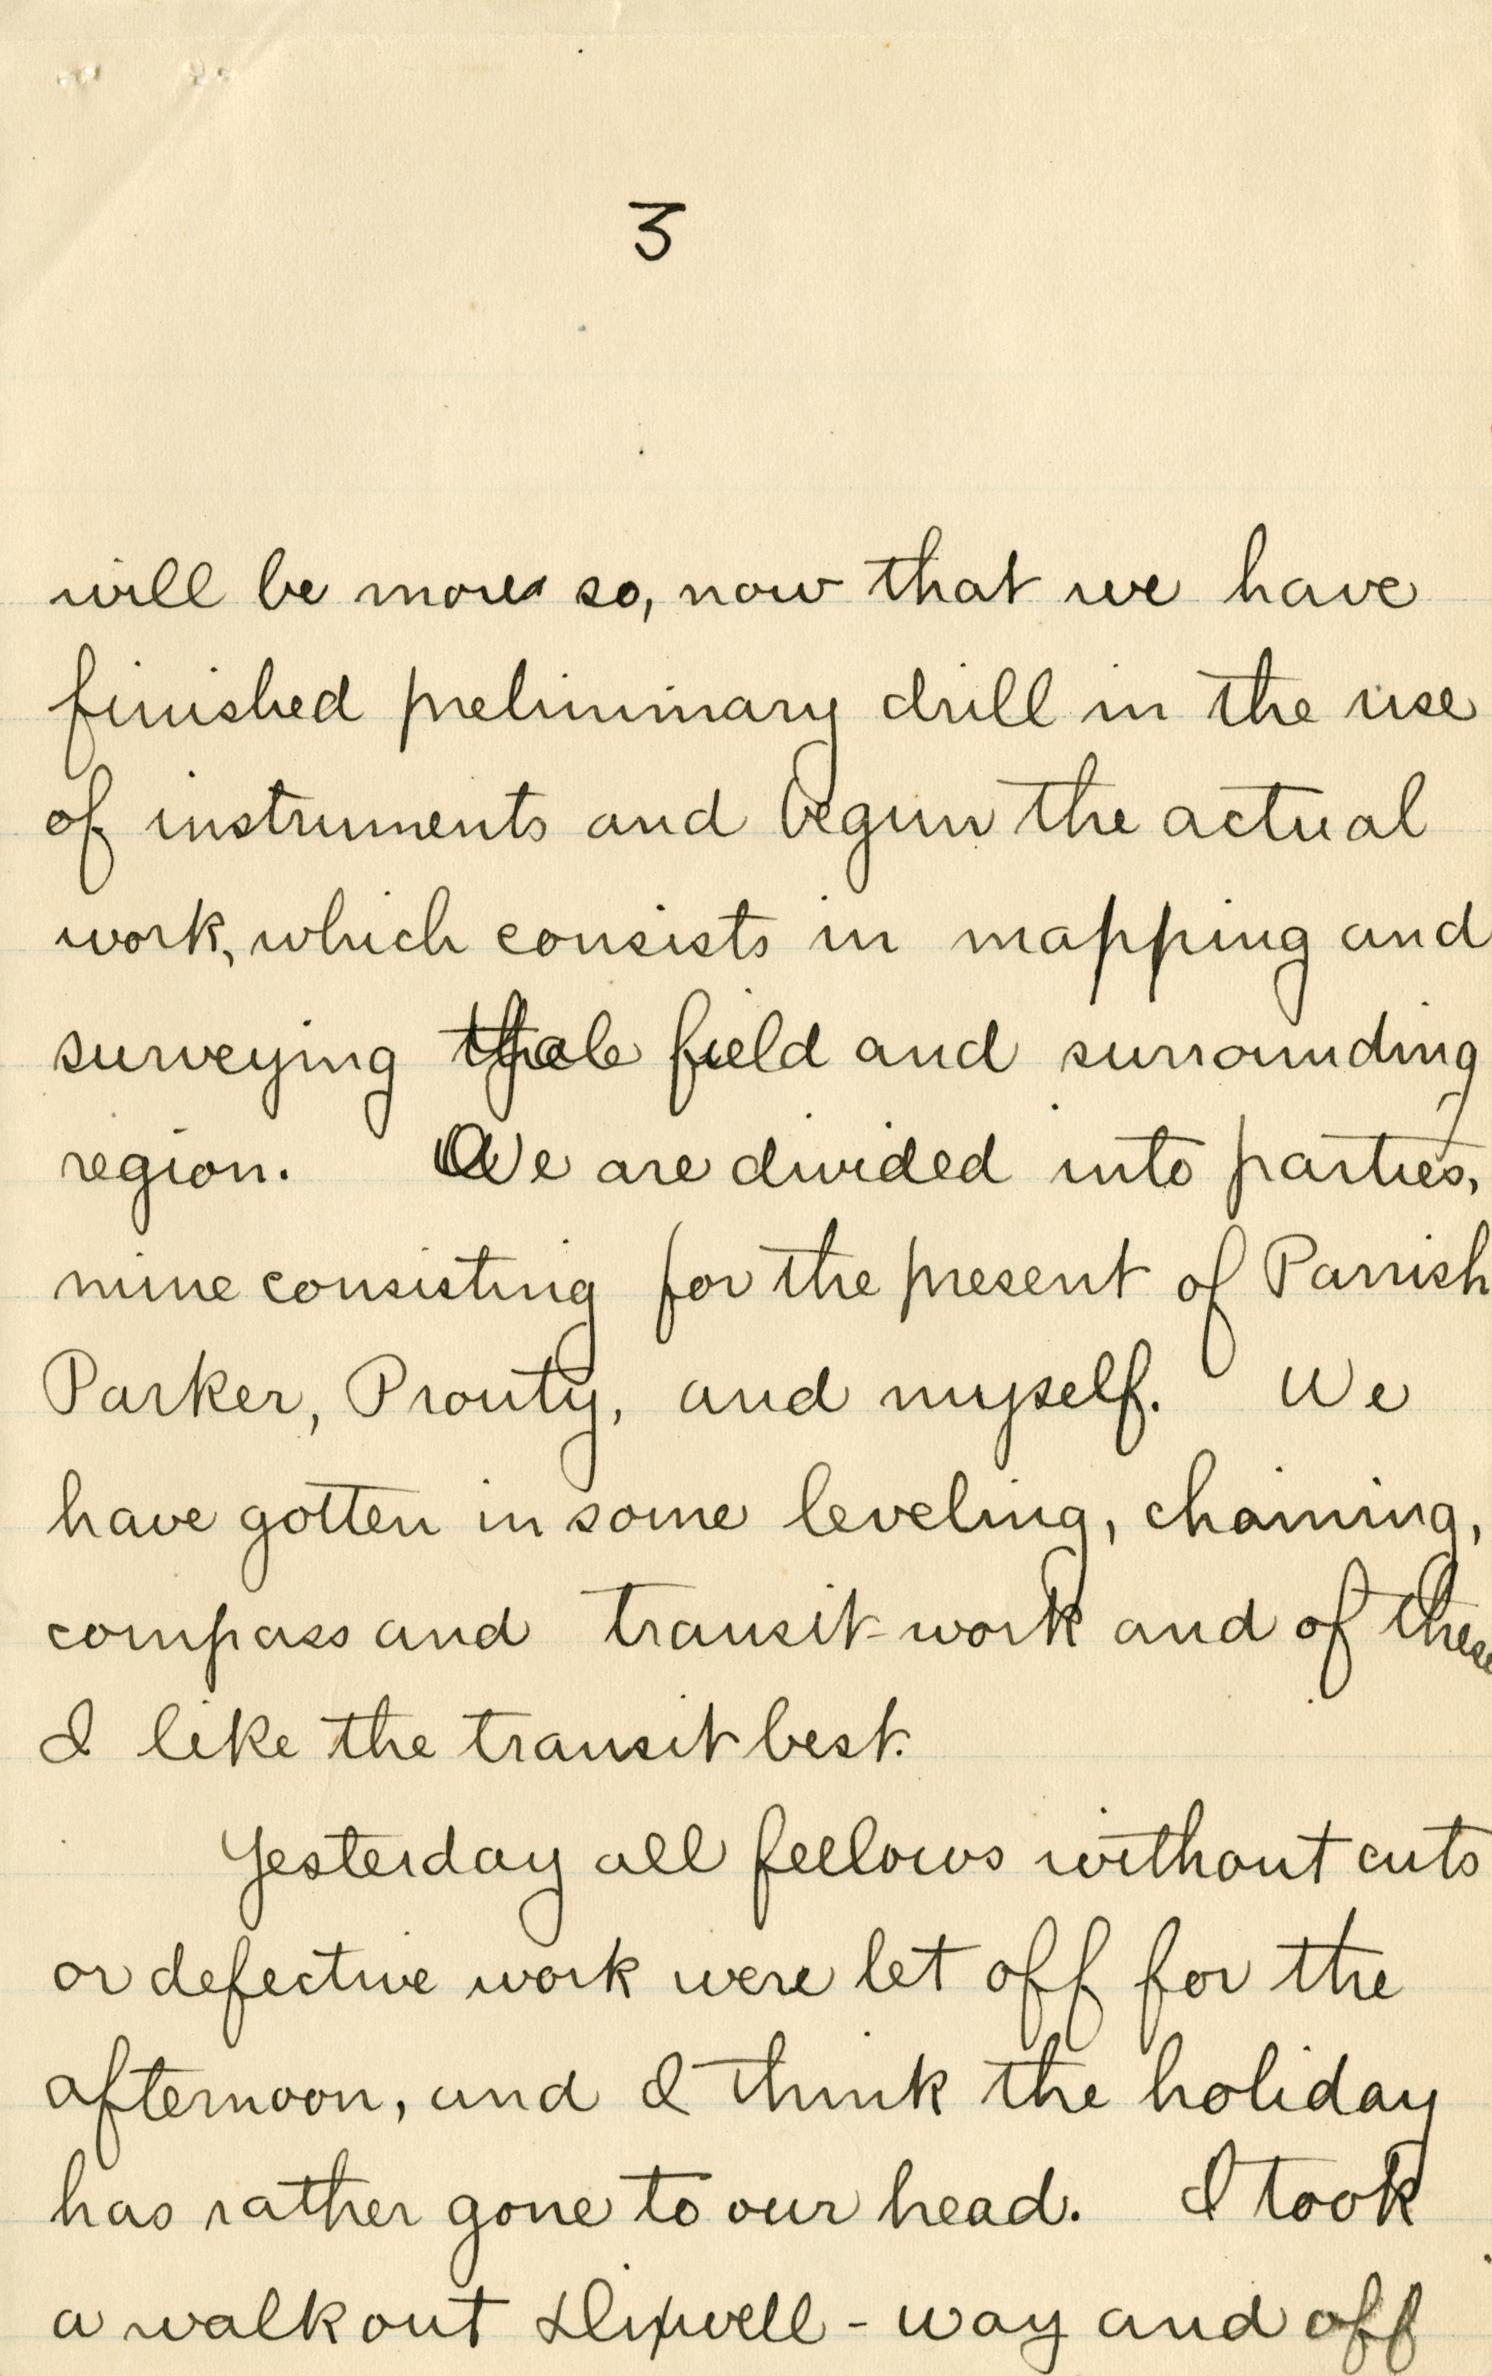 3
will be more so, now that we have
finished preliminary drill in the use
of instruments and begun the actual
work, which consists in mapping and
surveying Yale field and surrounding
region. We are divided into parties,
mine consisting for the present of Parrish
Parker, Prouty, and myself. We
have gotten in some leveling, chaining,
compass and transit-work and of these
I like the transit best.
Yesterday all fellows without cuts
or defective work were let off for the
afternoon, and I think the holiday
has rather gone to our head. I took
a walk out Dixwell-way and off